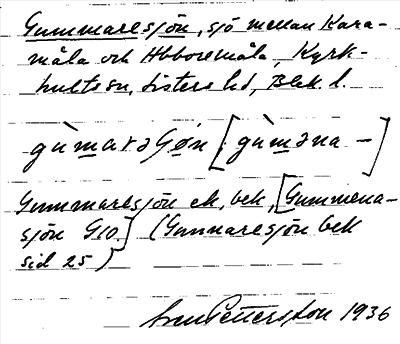 Gummaresjön, sjö mellan Kara-
måla och Abboremåla, Kyrk-
hults sn, Listers hd, Blek. l.
gùmarəʃøn [gùməna –]
Gummaresjön ek, bek, [Gummena-
sjön G10.] (Gunnaresjön bek
sid 25)
Sven Pettersson 1936